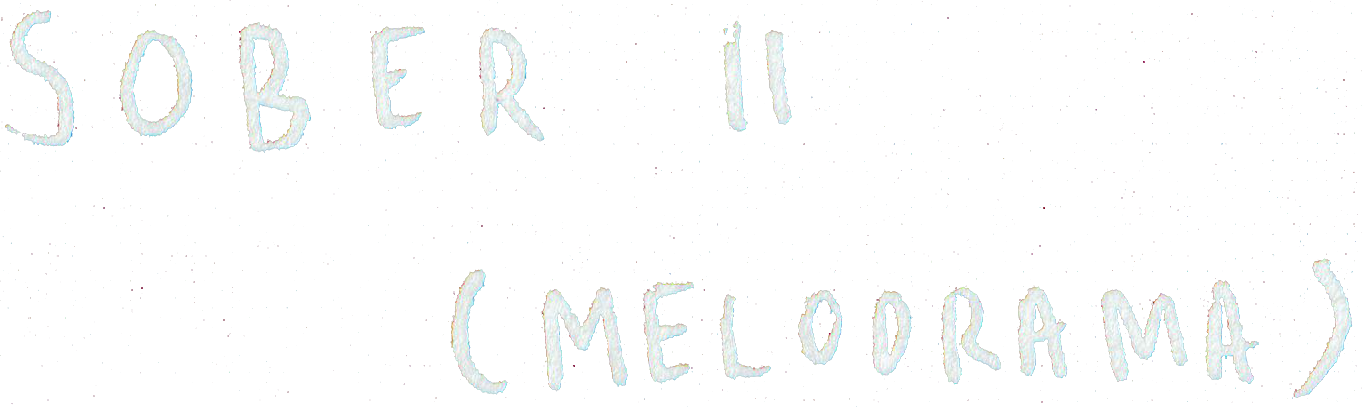 SOBER II
(MELODRAMA)